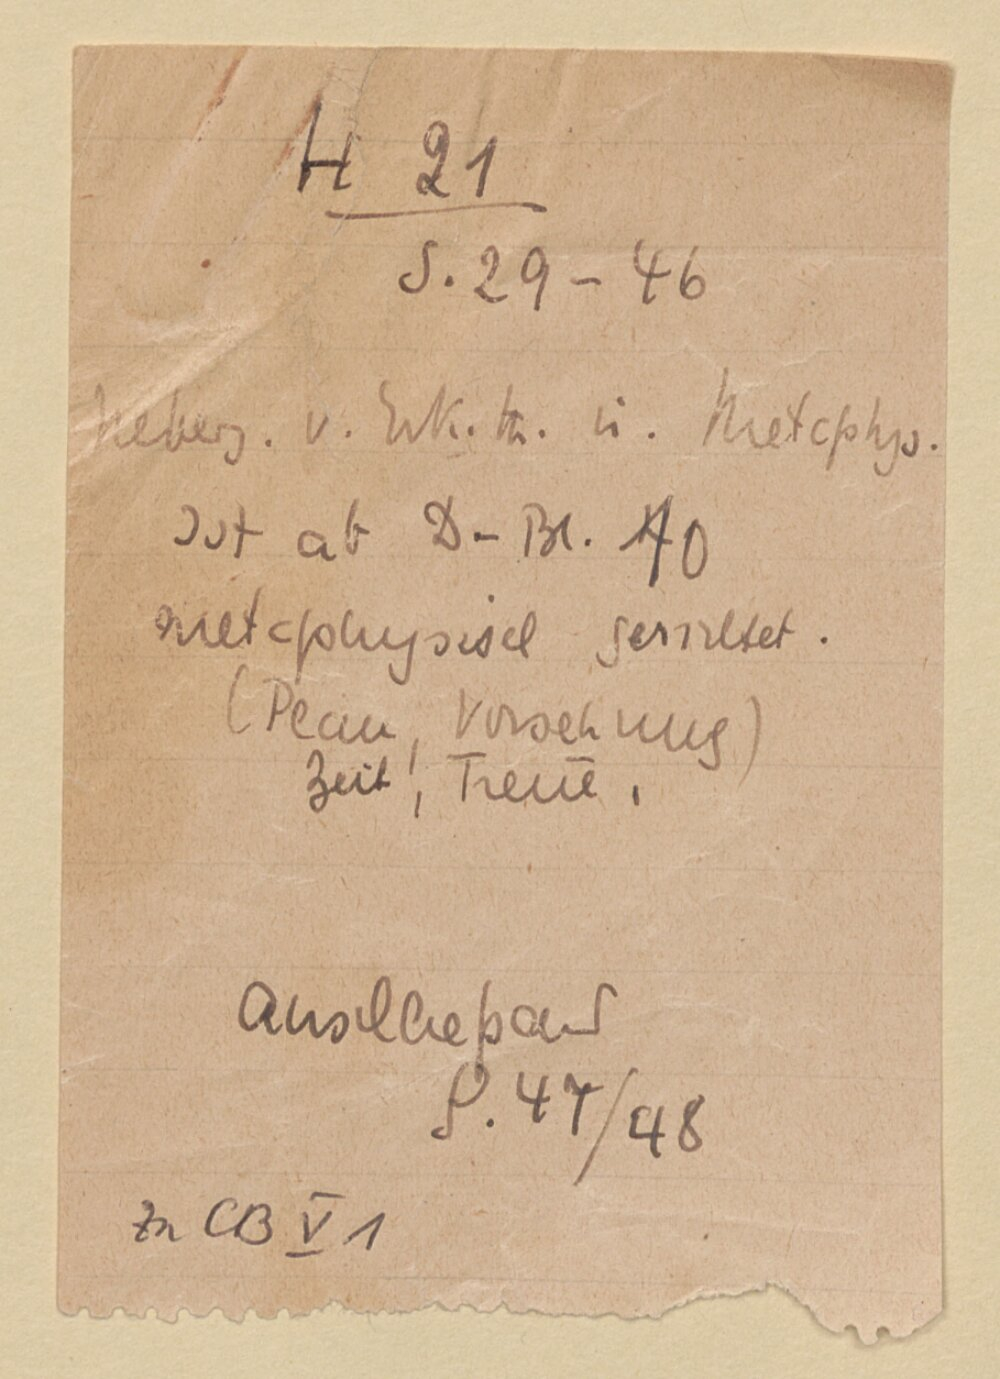 H 21
S. 29 - 46
Ueberg. v. Erk.th. u. Metaphys.
ist ab D-Bl. 40
metaphysisch gerichtet.
(Plan, Vorsehung)
Zeit!, Treue.
Anschließend
S. 47/48
Zu CB V 1